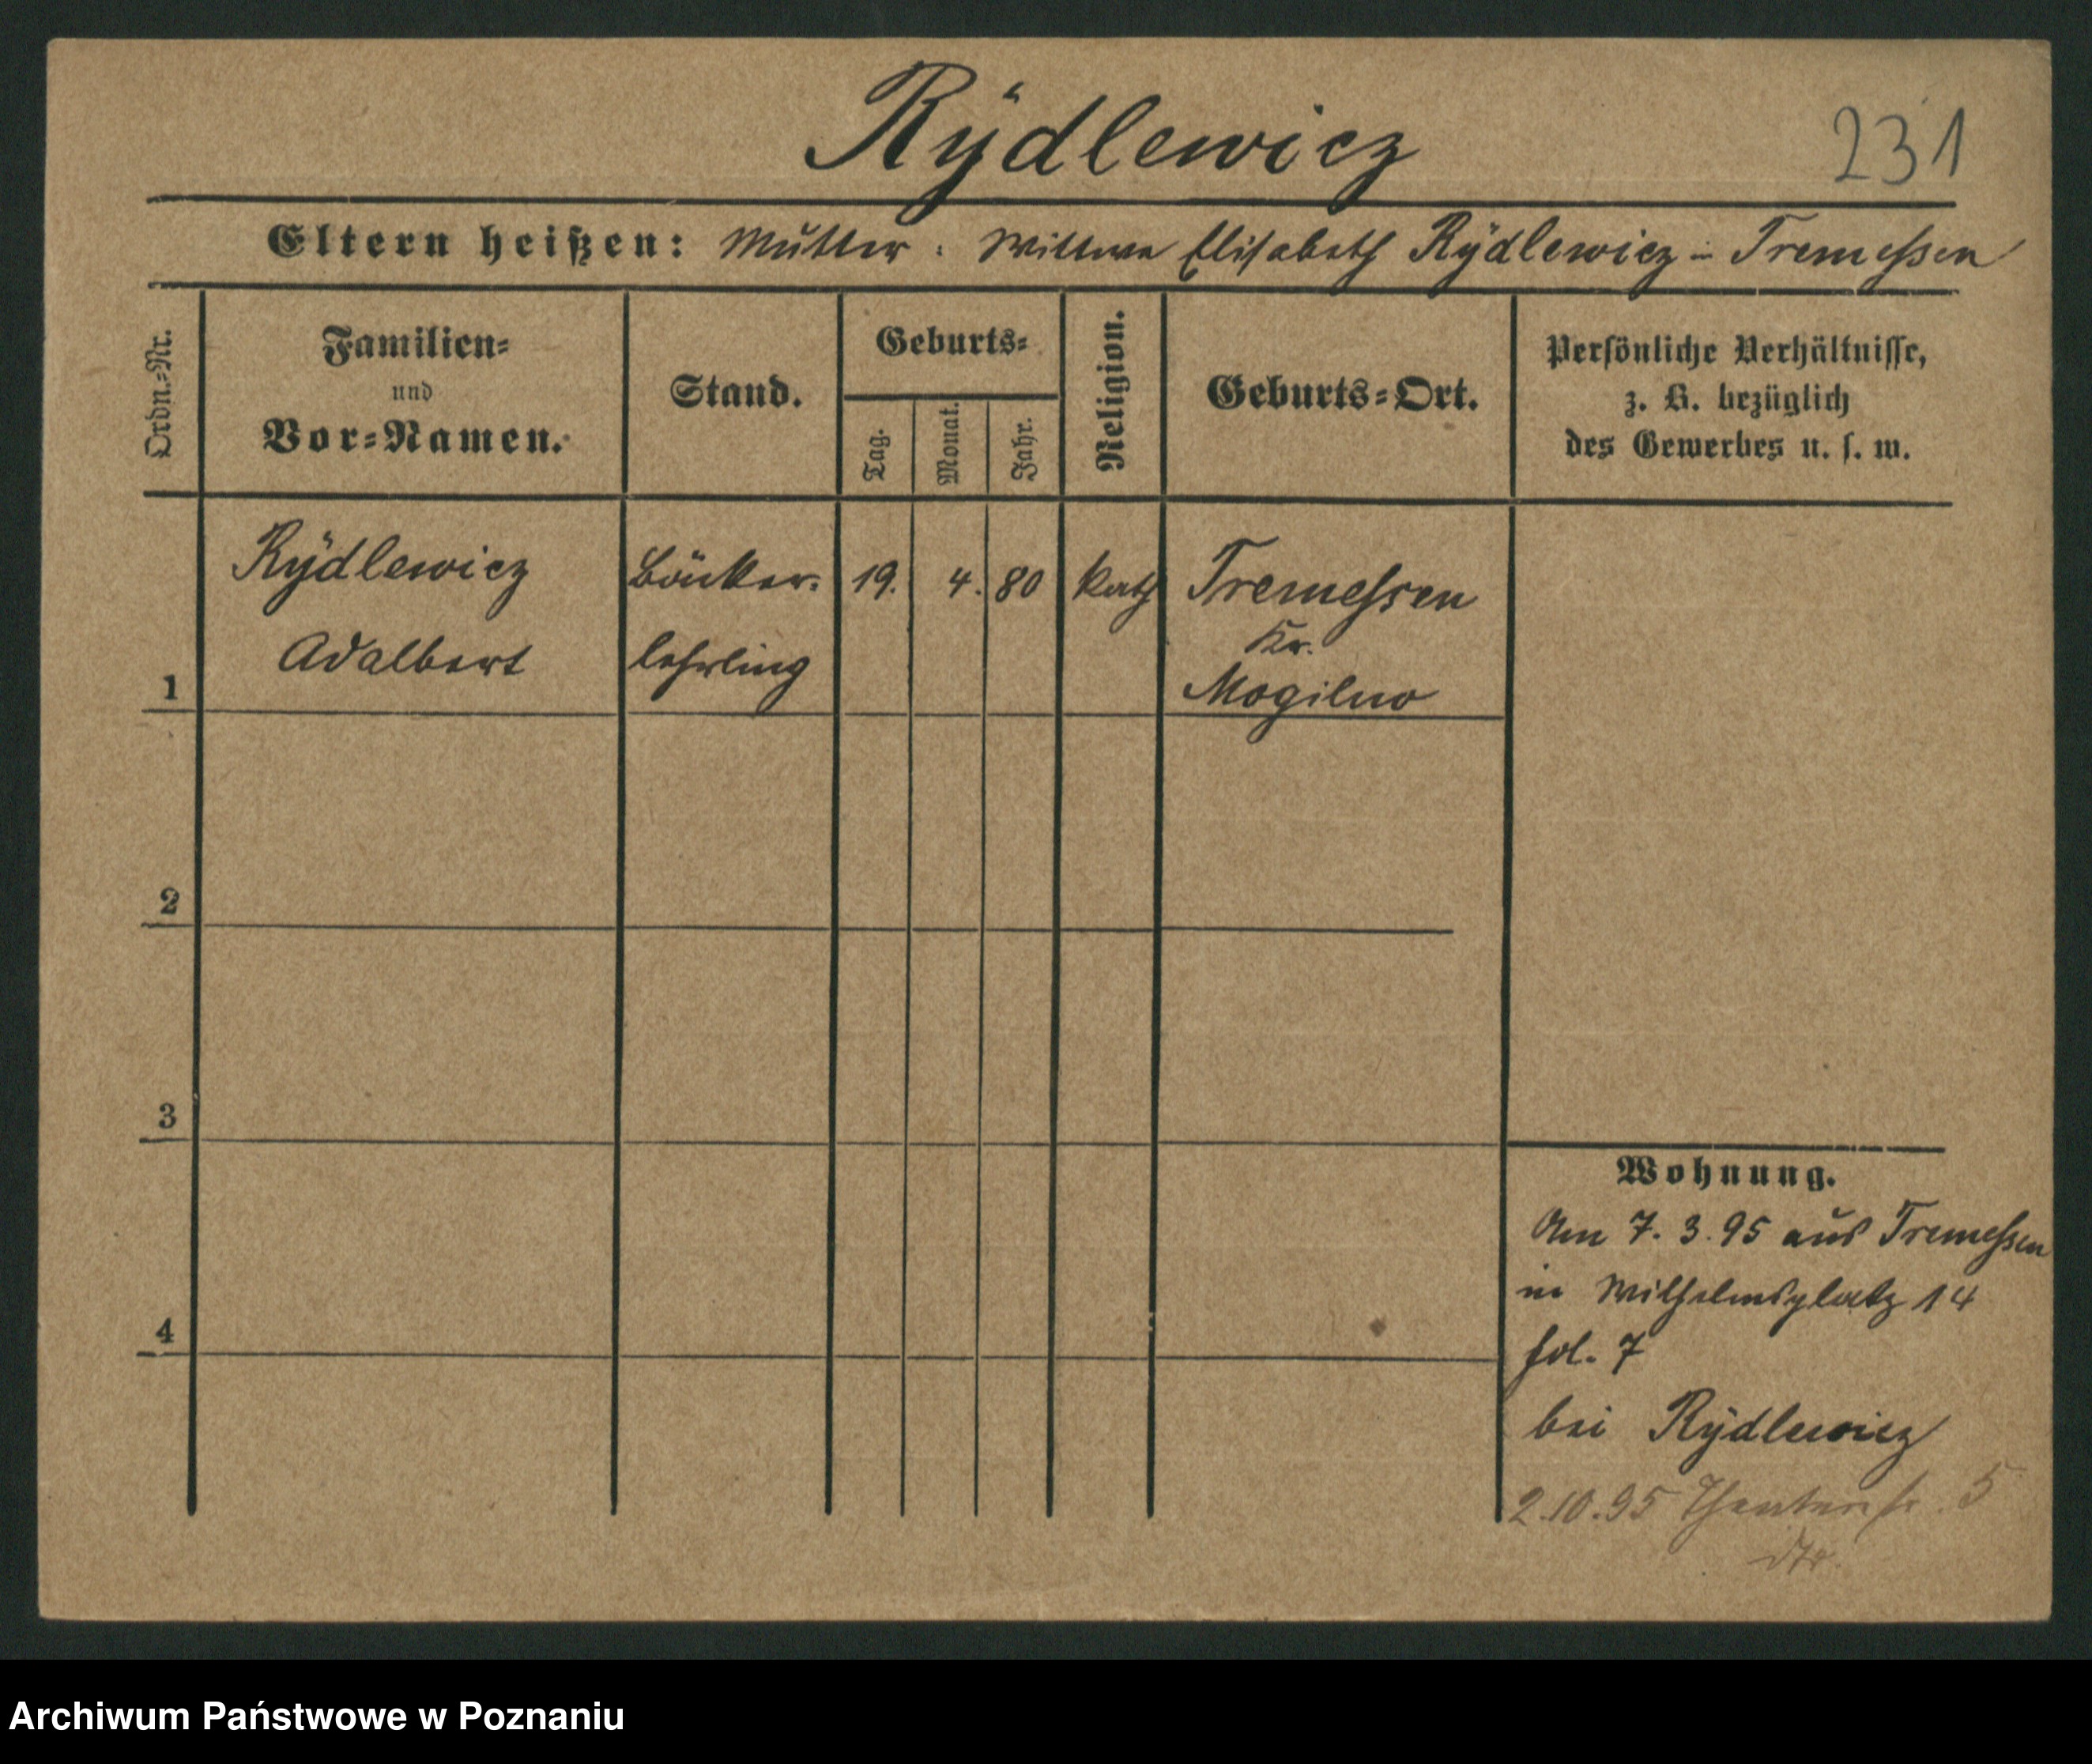 Rÿdlewicz
231
Eltern heißen: Mutter: Wittwe Elisabeth Rÿdlewicz in Tremessen
Ordn.-Nr.
Familien-
und
Vor-Namen.
Stand.
Geburts-
Tag.
Monat.
Jahr.
Religion.
Geburts-Ort.
Persönliche Verhältnisse,
z. B. bezüglich
des Gewerbes u. s. w.
Rÿdlewicz Bäcker- 19. 4. 80 kath Tremessen
Kr.
Adalbert lehrling
1 Mogilno
2
3
4
Wohnung.
Am 7. 3. 95 aus Tremessen
in Wilhelmsplatz 14
fol. 7
bei Rÿdlewicz
2.10.95 Theaterstr. 5
Archiwum Państwowe w Poznaniu